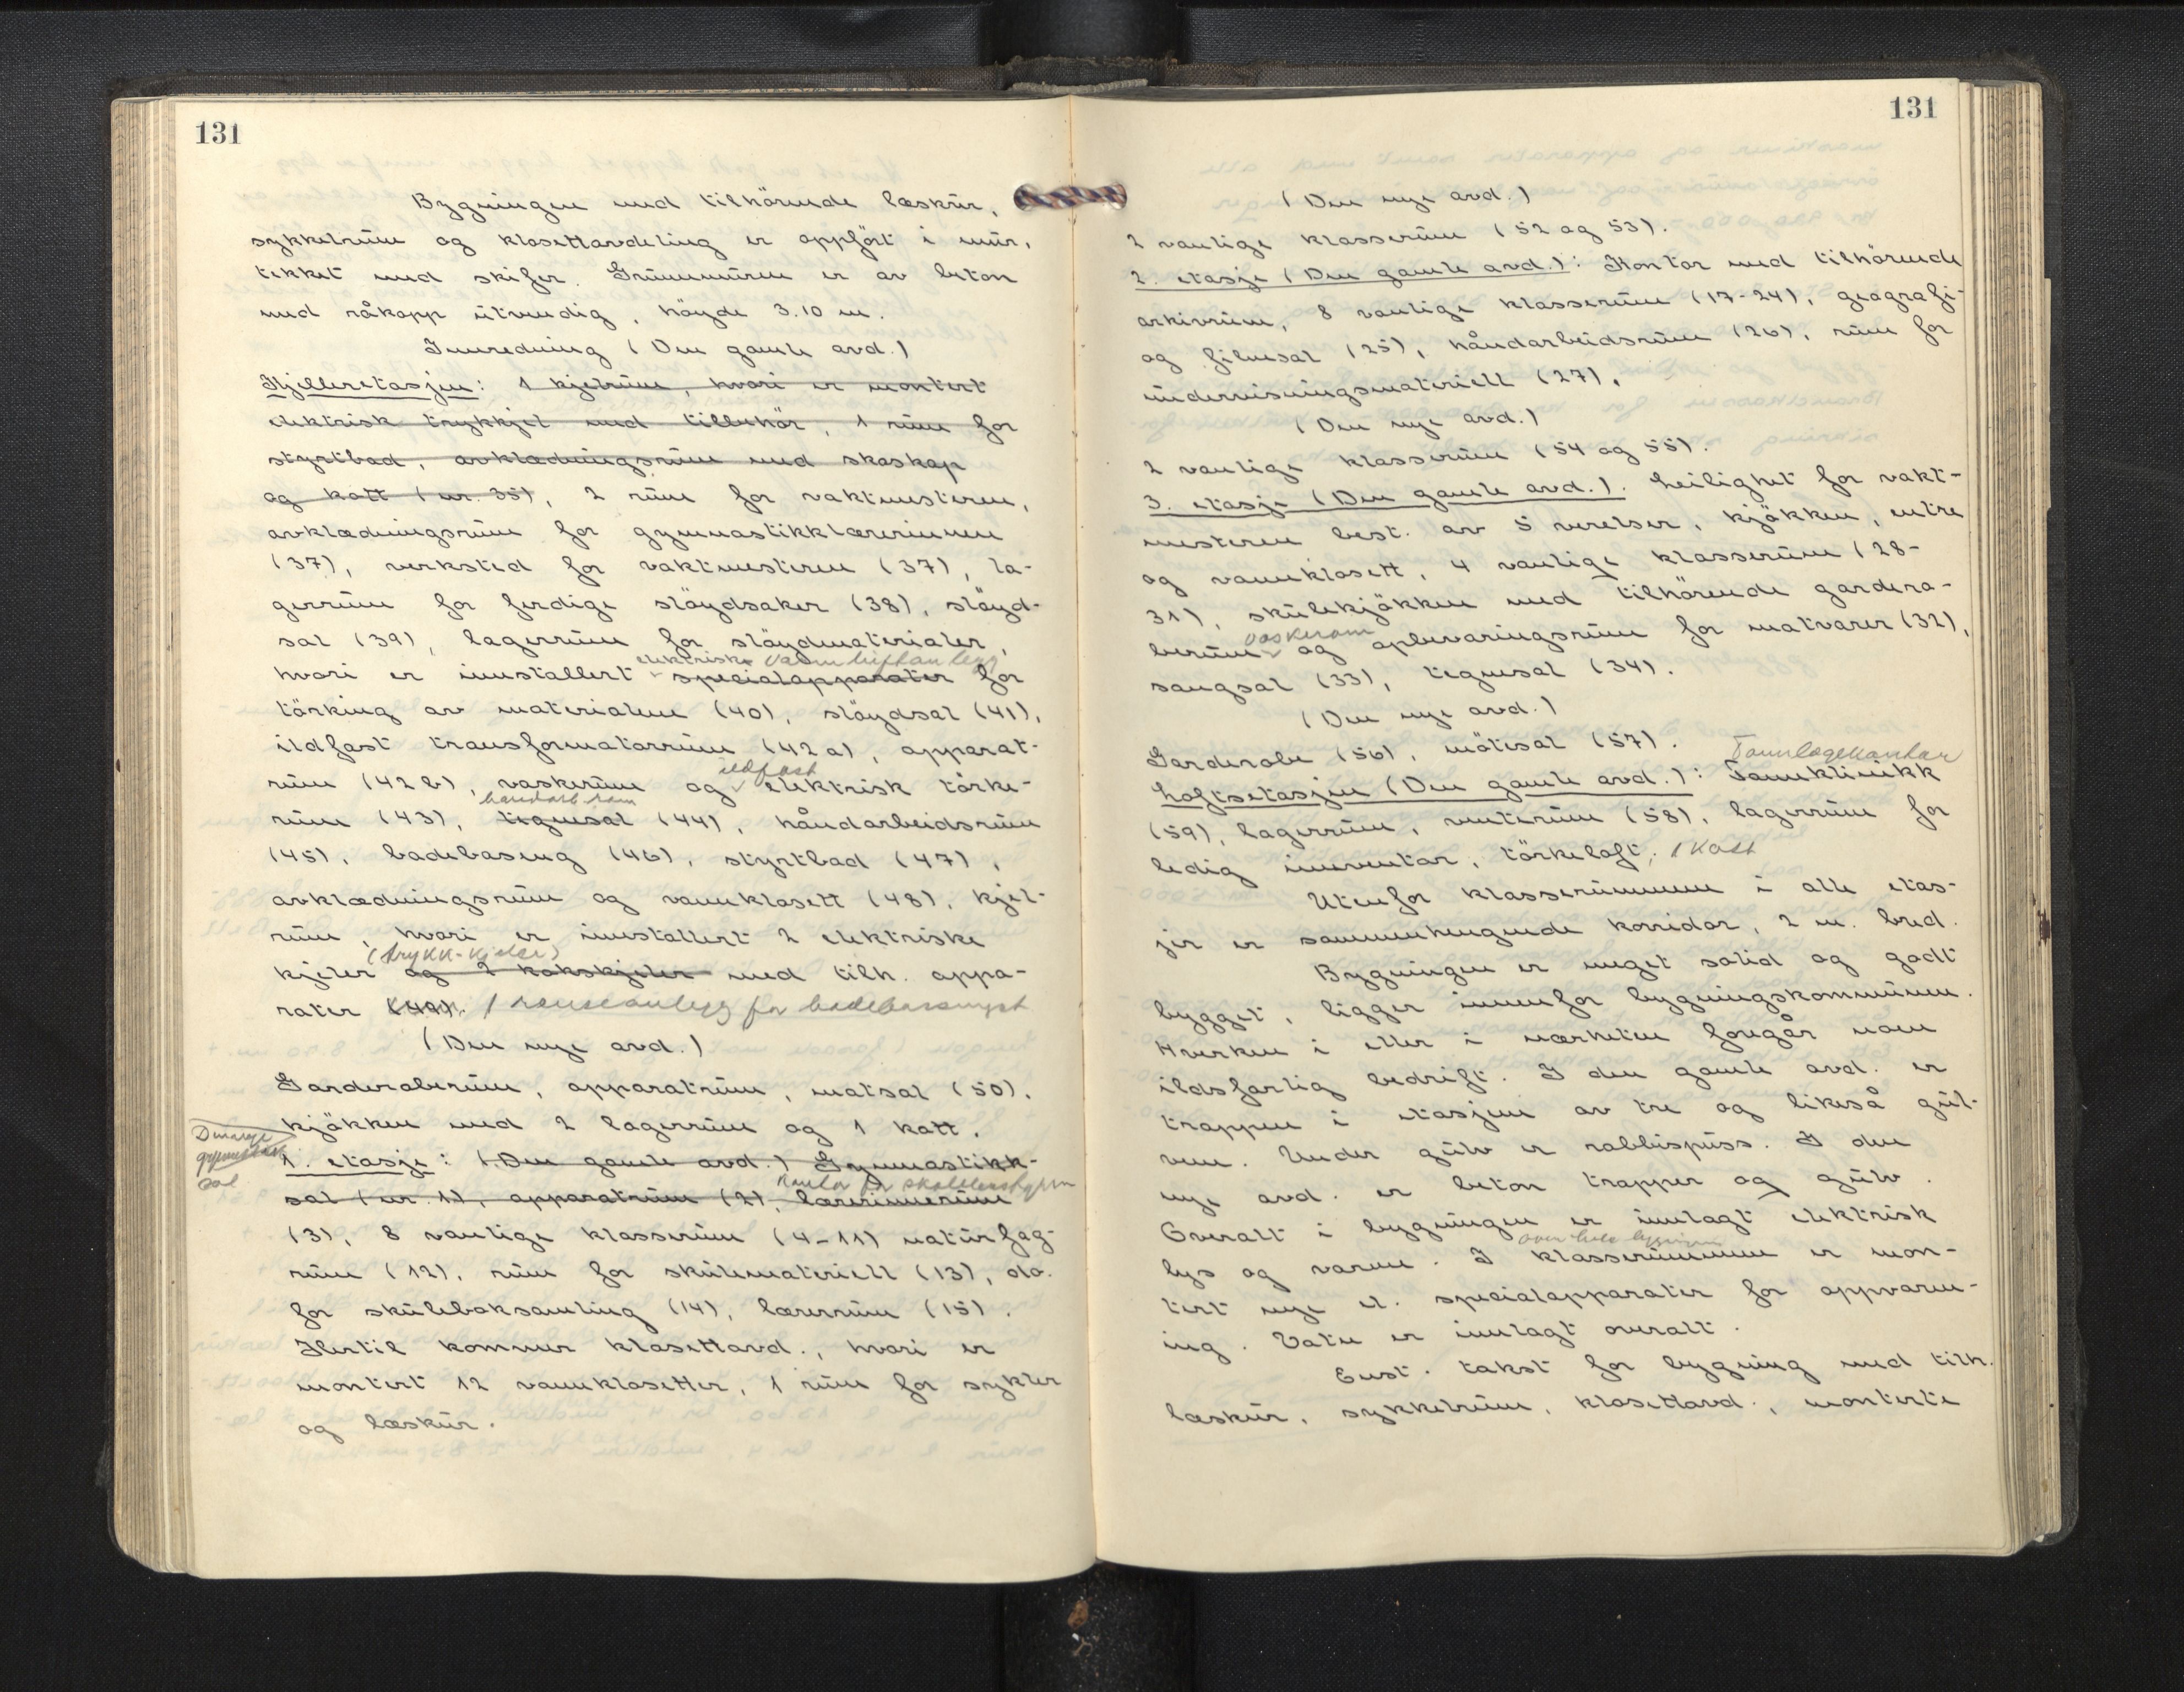 131
Bygningen med tilhörende læskür,
sykkelrüm og klosettavdeling er oppfört i mür,
tekket med skifer. Grünnmüren er av beton
med råkopp ütvendig, höyde 3.10 m.
Innredning (Den gamle avd.)
Kjelleretasjen: 1 kjelrüm, hvori er montert
elektrisk trykkjel med tilbehör, 1 rüm for
styrtbad, avklædningsrüm med skoskap
og kott (nr. 35), 2 rüm for vaktmesteren,
avklædningsrüm for gymnastikklærerinnen
(37), verksted for vaktmesteren (37), la-
gerrüm for ferdige slöydsaker (38), slöyd-
sal (39), lagerrüm for slöydmaterialer,
elektriske varmluftanlegg
hvori er innstallert specialapparater for
törking av materialene (40), slöydsal (41),
ildfast transformatorrüm (42 a), apparat-
ildfast
rüm (42 b), vaskerüm og elektrisk törke-
handarb rom
rüm (43), tegnesal (44), håndarbeidsrüm
(45), badebaseng (46), styrtbad (47),
avklædningsrüm og vannklosett (48), kjel-
rüm, hvori er innstallert 2 elektriske
(trykk-kjeler)
kjeler og 2 kokskjeler med tilh. appa-
rater (49). 1 renseanlegg for badebassenget
(Den nye avd.)
Garderoberüm, apparatrüm, matsal (50),
kjökken med 2 lagerrüm og 1 kott.
Den nye
gymnastikk
sal
1. etasje: (Den gamle avd.) Gymnastikk-
kontor for skolebestyrer
sal (nr. 1), apparatrüm (2), lærerinnerüm
(3), 8 vanlige klasserüm (4-11) natürfag-
rüm (12), rüm for skülemateriell (13), do.
for sküleboksamling (14), lærerrüm (15).
Hertil kommer klosettavd., hvori er
montert 12 vannklosetter, 1 rüm for sykler
og læskür.
131
(Den nye avd.)
2 vanlige klasserüm (52 og 53).
2. etasje (Den gamle avd.): Kontor med tilhörende
arkivrüm, 8 vanlige klasserüm (17-24), geografi-
og filmsal (25), håndarbeidsrüm (26), rüm for
ündervisningsmateriell (27).
(Den nye avd.)
2 vanlige klasserüm (54 og 55).
3. etasje (Den gamle avd.). Leilighet for vakt-
mesteren best. av 5 værelser, kjökken, entre
og vannklosett, 4 vanlige klasserüm (28-
31), skülekjökken med tilhörende gardero-
vaskerom
berüm og opbevaringsrüm for matvarer (32),
sangsal (33), tegnesal (34).
(Den nye avd.)
Garderobe (56), mötesal (57).
Tannlegekontor
Loftsetasjen (Den gamle avd.): Tannklinikk
(59), lagerrüm, venterüm (58), lagerrüm for
ledig innventar, törkeloft, 1 kott
Utenfor klasserümmene i alle etas-
jer er sammenhengende korridor, 2 m. bred.
Bygningen er meget solid og godt
bygget, ligger innenfor bygningskommünen.
Hverken i eller i nærheten foregår noen
ildsfarlig bedrift. I den gamle avd. er
trappen i etasjen av tre og likeså gül-
vene. Under gülv er rabbispüss. I den
nye avd. er beton trapper og gülv.
Overalt i bygningen er innlagt elektrisk
over hele bygningen
lys og varme. I klasserümmene er mon-
tert nye el. specialapparater for oppvarm-
ing. Vatn er innlagt overalt.
Enst. takst for bygning med tilh.
læskür, sykkelrüm, klosettavd., monterte